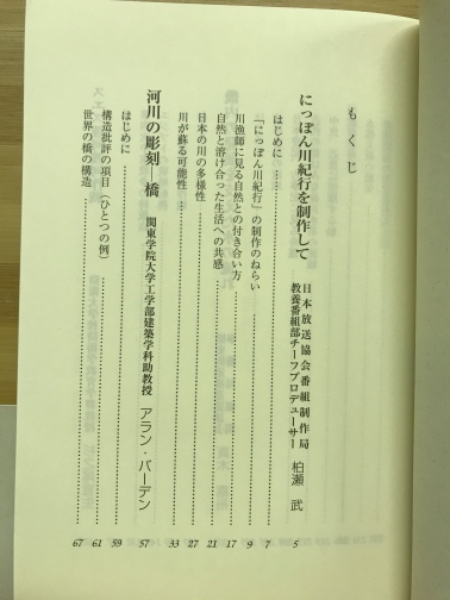 もくじ
にっぽん川紀行を制作して 日本放送協会番組制作局 教養番組部チーフプロデューサー 柏瀬 武 5
はじめに 7
「にっぽん川紀行」の制作のねらい 9
川漁師に見る自然との付き合い方 17
自然と溶け合った生活への共感 21
日本の川の多様性 27
川が蘇る可能性 33
河川の彫刻―橋 関東学院大学工学部建築学科助教授 アラン・バーデン 57
はじめに 59
構造批評の項目(ひとつの例) 61
世界の橋の構造 67